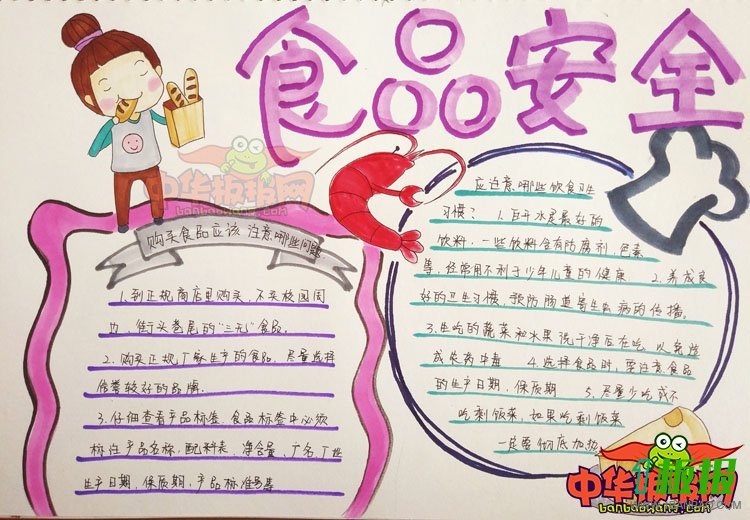 食品安全
中华板报网
banbaowang.com
购买食品应该注意哪些问题
1.到正规商店里购买，不买校园周
边、街头巷尾的"三无"食品。
2.购买正规厂家生产的食品，尽量选择
信誉较好的品牌。
3.仔细查看产品标签，食品标签中必须
标注产品名称，配料表，净含量，厂名，厂址
生产日期，保质期，产品标准号等
应注意哪些饮食卫生
习惯？ 1.白开水是最好的
饮料，一些饮料含有防腐剂，色素
等，经常用不利于少年儿童的健康 2.养成良
好的卫生习惯，预防肠道寄生虫病的传播。
3.生吃的蔬菜和水果洗干净后在吃，以免造
成农药中毒 4.选择食品时，要注意食品
的生产日期，保质期 5.尽量少吃或不
吃剩饭菜，如果吃剩饭菜
一定要彻底加热
中华板报网
banbaowang.com